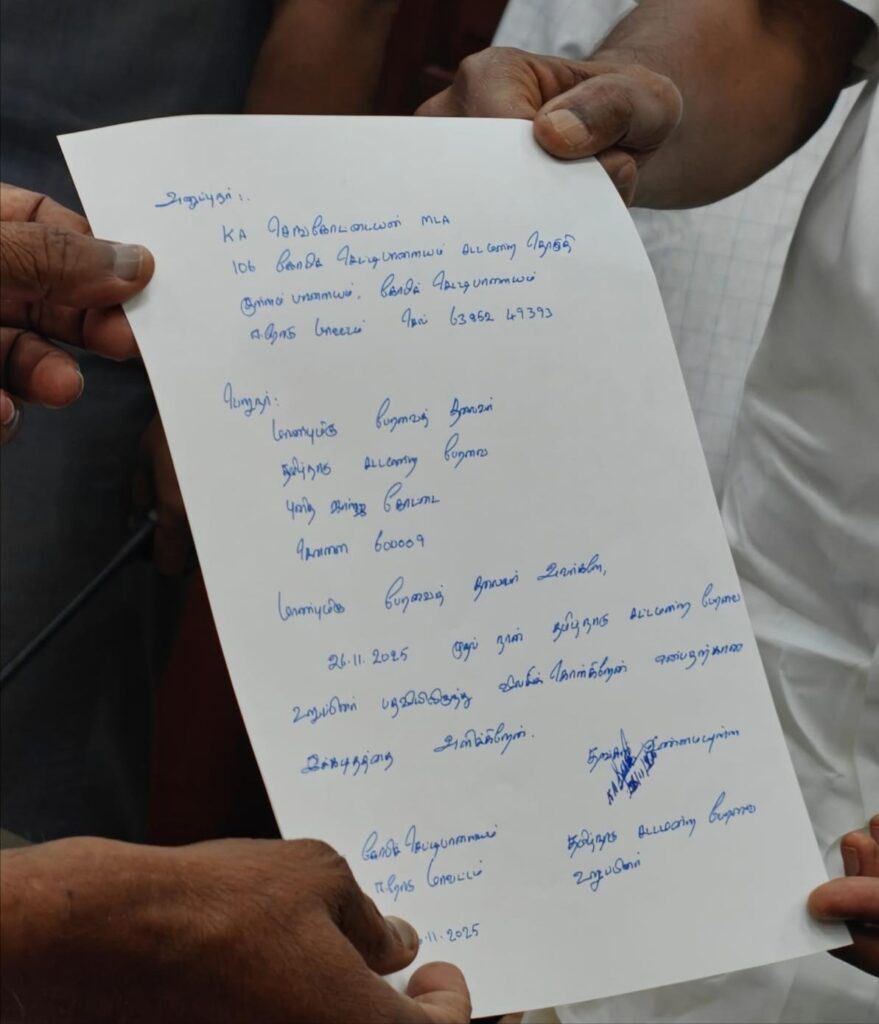 அனுப்புநர்:.
KA செங்கோட்டையன் MLA
106 கோபிச் செட்டிபாளையம் சட்டமன்ற தொகுதி
குள்ளம் பாளையம், கோபிச் செட்டிபாளையம்
ஈரோடு மாவட்டம் செல் 63852 49393
பெறுநர்:
மாண்புமிகு பேரவைத் தலைவர்
தமிழ்நாடு சட்டமன்ற பேரவை
புனித ஜார்ஜ் கோட்டை
சென்னை 600009
மாண்புமிகு பேரவைத் தலைவர் அவர்களே,
26.11.2025 முதல் நான் தமிழ்நாடு சட்டமன்ற பேரவை
உறுப்பினர் பதவியிலிருந்து விலகிக் கொள்கிறேன் என்பதற்கான
இக்கடிதத்தை அளிக்கிறேன்.
தங்கள் உண்மையுள்ள
கோபிச் செட்டிபாளையம்
ஈரோடு மாவட்டம்
தமிழ்நாடு சட்டமன்ற பேரவை
உறுப்பினர்
.11.2025